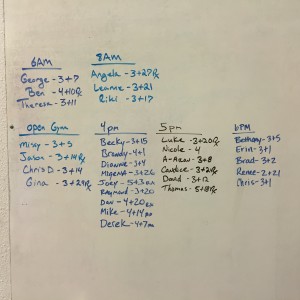 6AM
George - 3+7
Ben - 4+10Rx
Theresa - 3+11
8AM
Angela - 3+27Rx
Leanne - 3+21
Riki - 3+17
Open Gym
Missy - 3+5
Jason - 3+14Rx
Chris D - 3+5
Gina - 3+24Rx
4pm
Becky - 3+15
Brandy - 4+1
Dianne - 3+4
Migena - 3+26
Joey - 5+3
Raymond - 3+20
Dan - 4+20
Mike - 4+14
Derek - 4+7
5pm
Luke - 3+20Rx
Nicole - 4
A-Aron - 3+8
Candice - 3+29Rx
David - 3+12
Thomas - 5+8Rx
6PM
Bethany - 3+5
Erin - 3+1
Brad - 3+2
Renee - 2+21
Chris - 3+1